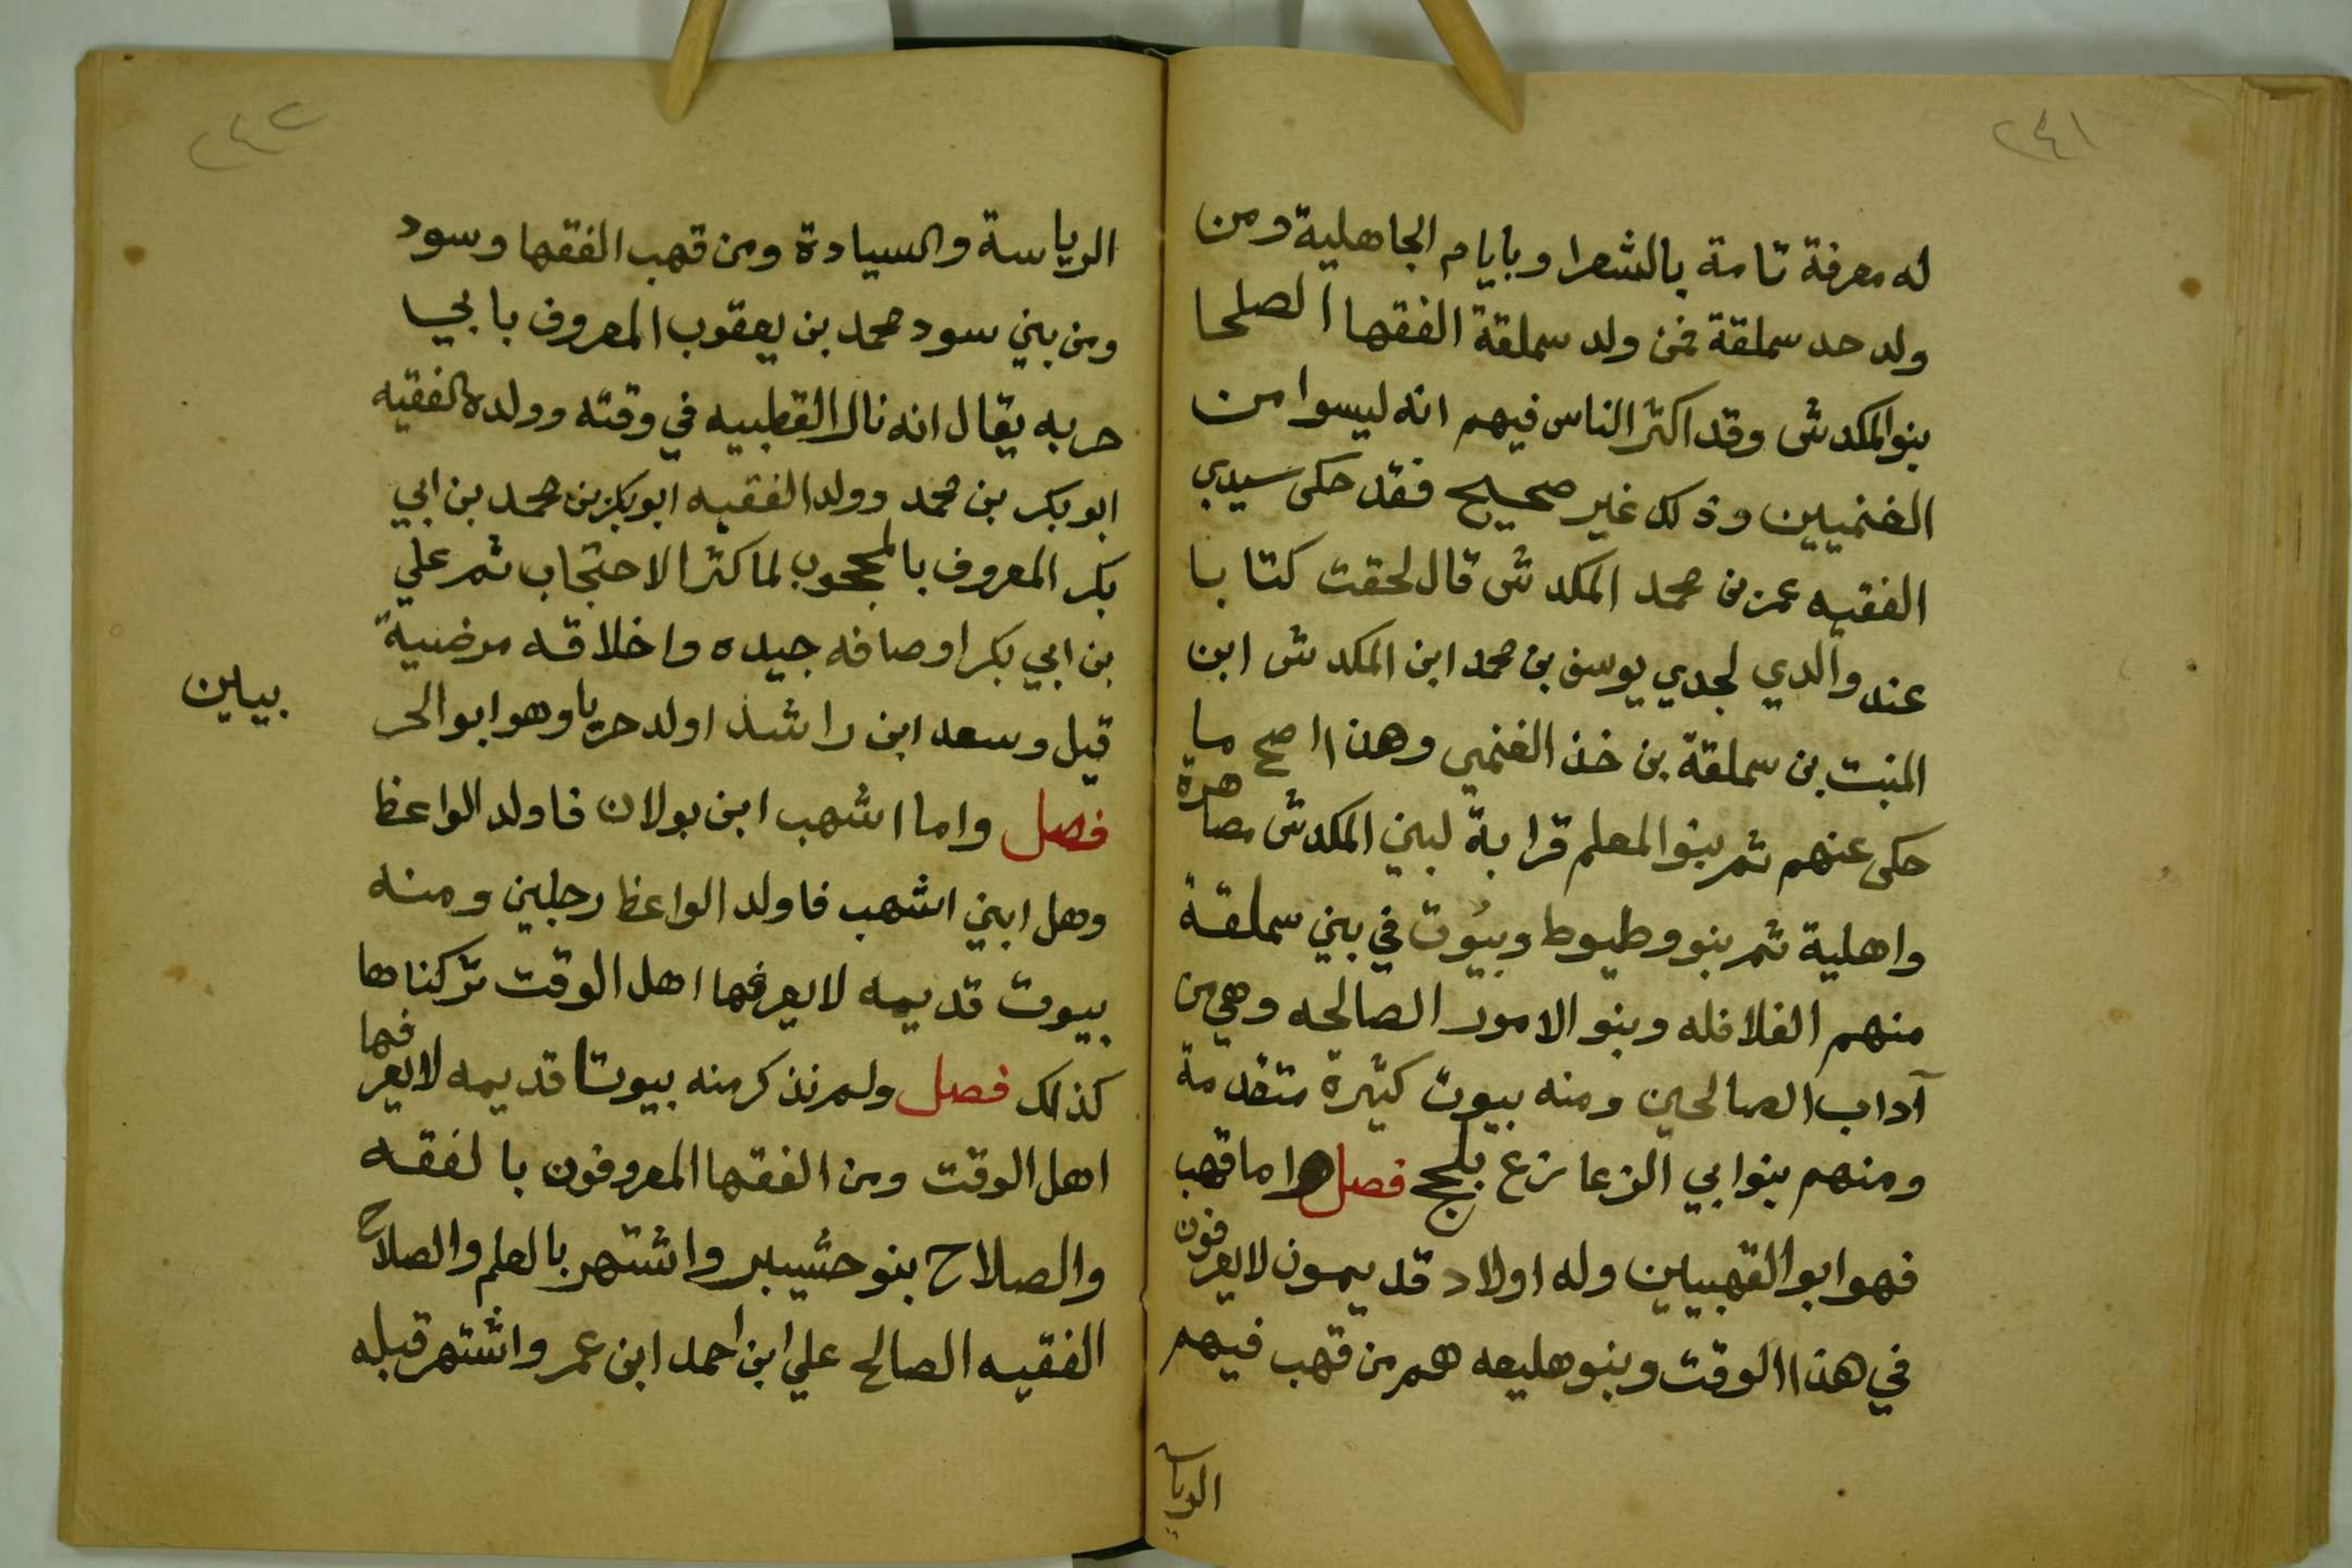 ٢٤١
له معرفة تامة بالشعرا وبايام الجاهلية ومن
ولد حد سملقة فمن ولد سملقة الفقها الصلحا
بنوا المكدش وقد اكثر الناس فيهم انه ليسوا من
الغنميين وذلك غير صحيح فقد حكى سيدي
الفقيه عمر بن محمد المكدش قال لحقت كتابا
عند والدي لجدي يوسف بن محمد ابن المكدش ابن
المنبت بن سملقة بن خذ الغنمي وهذا اصح ما
حكى عنهم ثم بنوا المعلم قرابة لبني المكدش مصاهرة
واهلية ثم بنو وطيوط وبيُوت في بني سملقة
منهم الفلافله وبنو الامور الصالحه وهي من
آداب الصالحين ومنه بيوت كثيرة متقدمة
ومنهم بنوا بي الزعازع بلحج فصل واما قهب
فهو ابو القهبيين وله اولاد قديمون لا يعرفون
في هذا الوقت وبنو هليعه هم من قهب فيهم
الرياس
٢٤٢
الرياسة والسيادة ومن قهب الفقها وسود
ومن بني سود محمد بن يعقوب المعروف بابي
حربه يقال انه نال القطبيه في وقته وولده الفقيه
ابو بكر بن محمد وولد الفقيه ابو بكر بن محمد بن ابي
بكر المعروف بالمحجوب لما كثر الاحتجاب ثم علي
بن ابي بكر اوصافه جيده واخلاقه مرضية
قيل وسعد ابن راشد اولد حربا وهو ابو الحر
بيين
فصل واما اشهب ابن بولان فاولد الواعظ
وهل ابني اشهب فاولد الواعظ رجلين ومنه
بيوت قديمه لا يعرفها اهل الوقت تركناها
كذلك فصل ولم نذكر منه بيوتا قديمه لا يعرفها
اهل الوقت ومن الفقها المعروفون بالفقه
والصلاح بنو حشيبر واشتهر بالعلم والصلاح
الفقيه الصالح علي ابن احمد ابن عمر واشتهر قبله